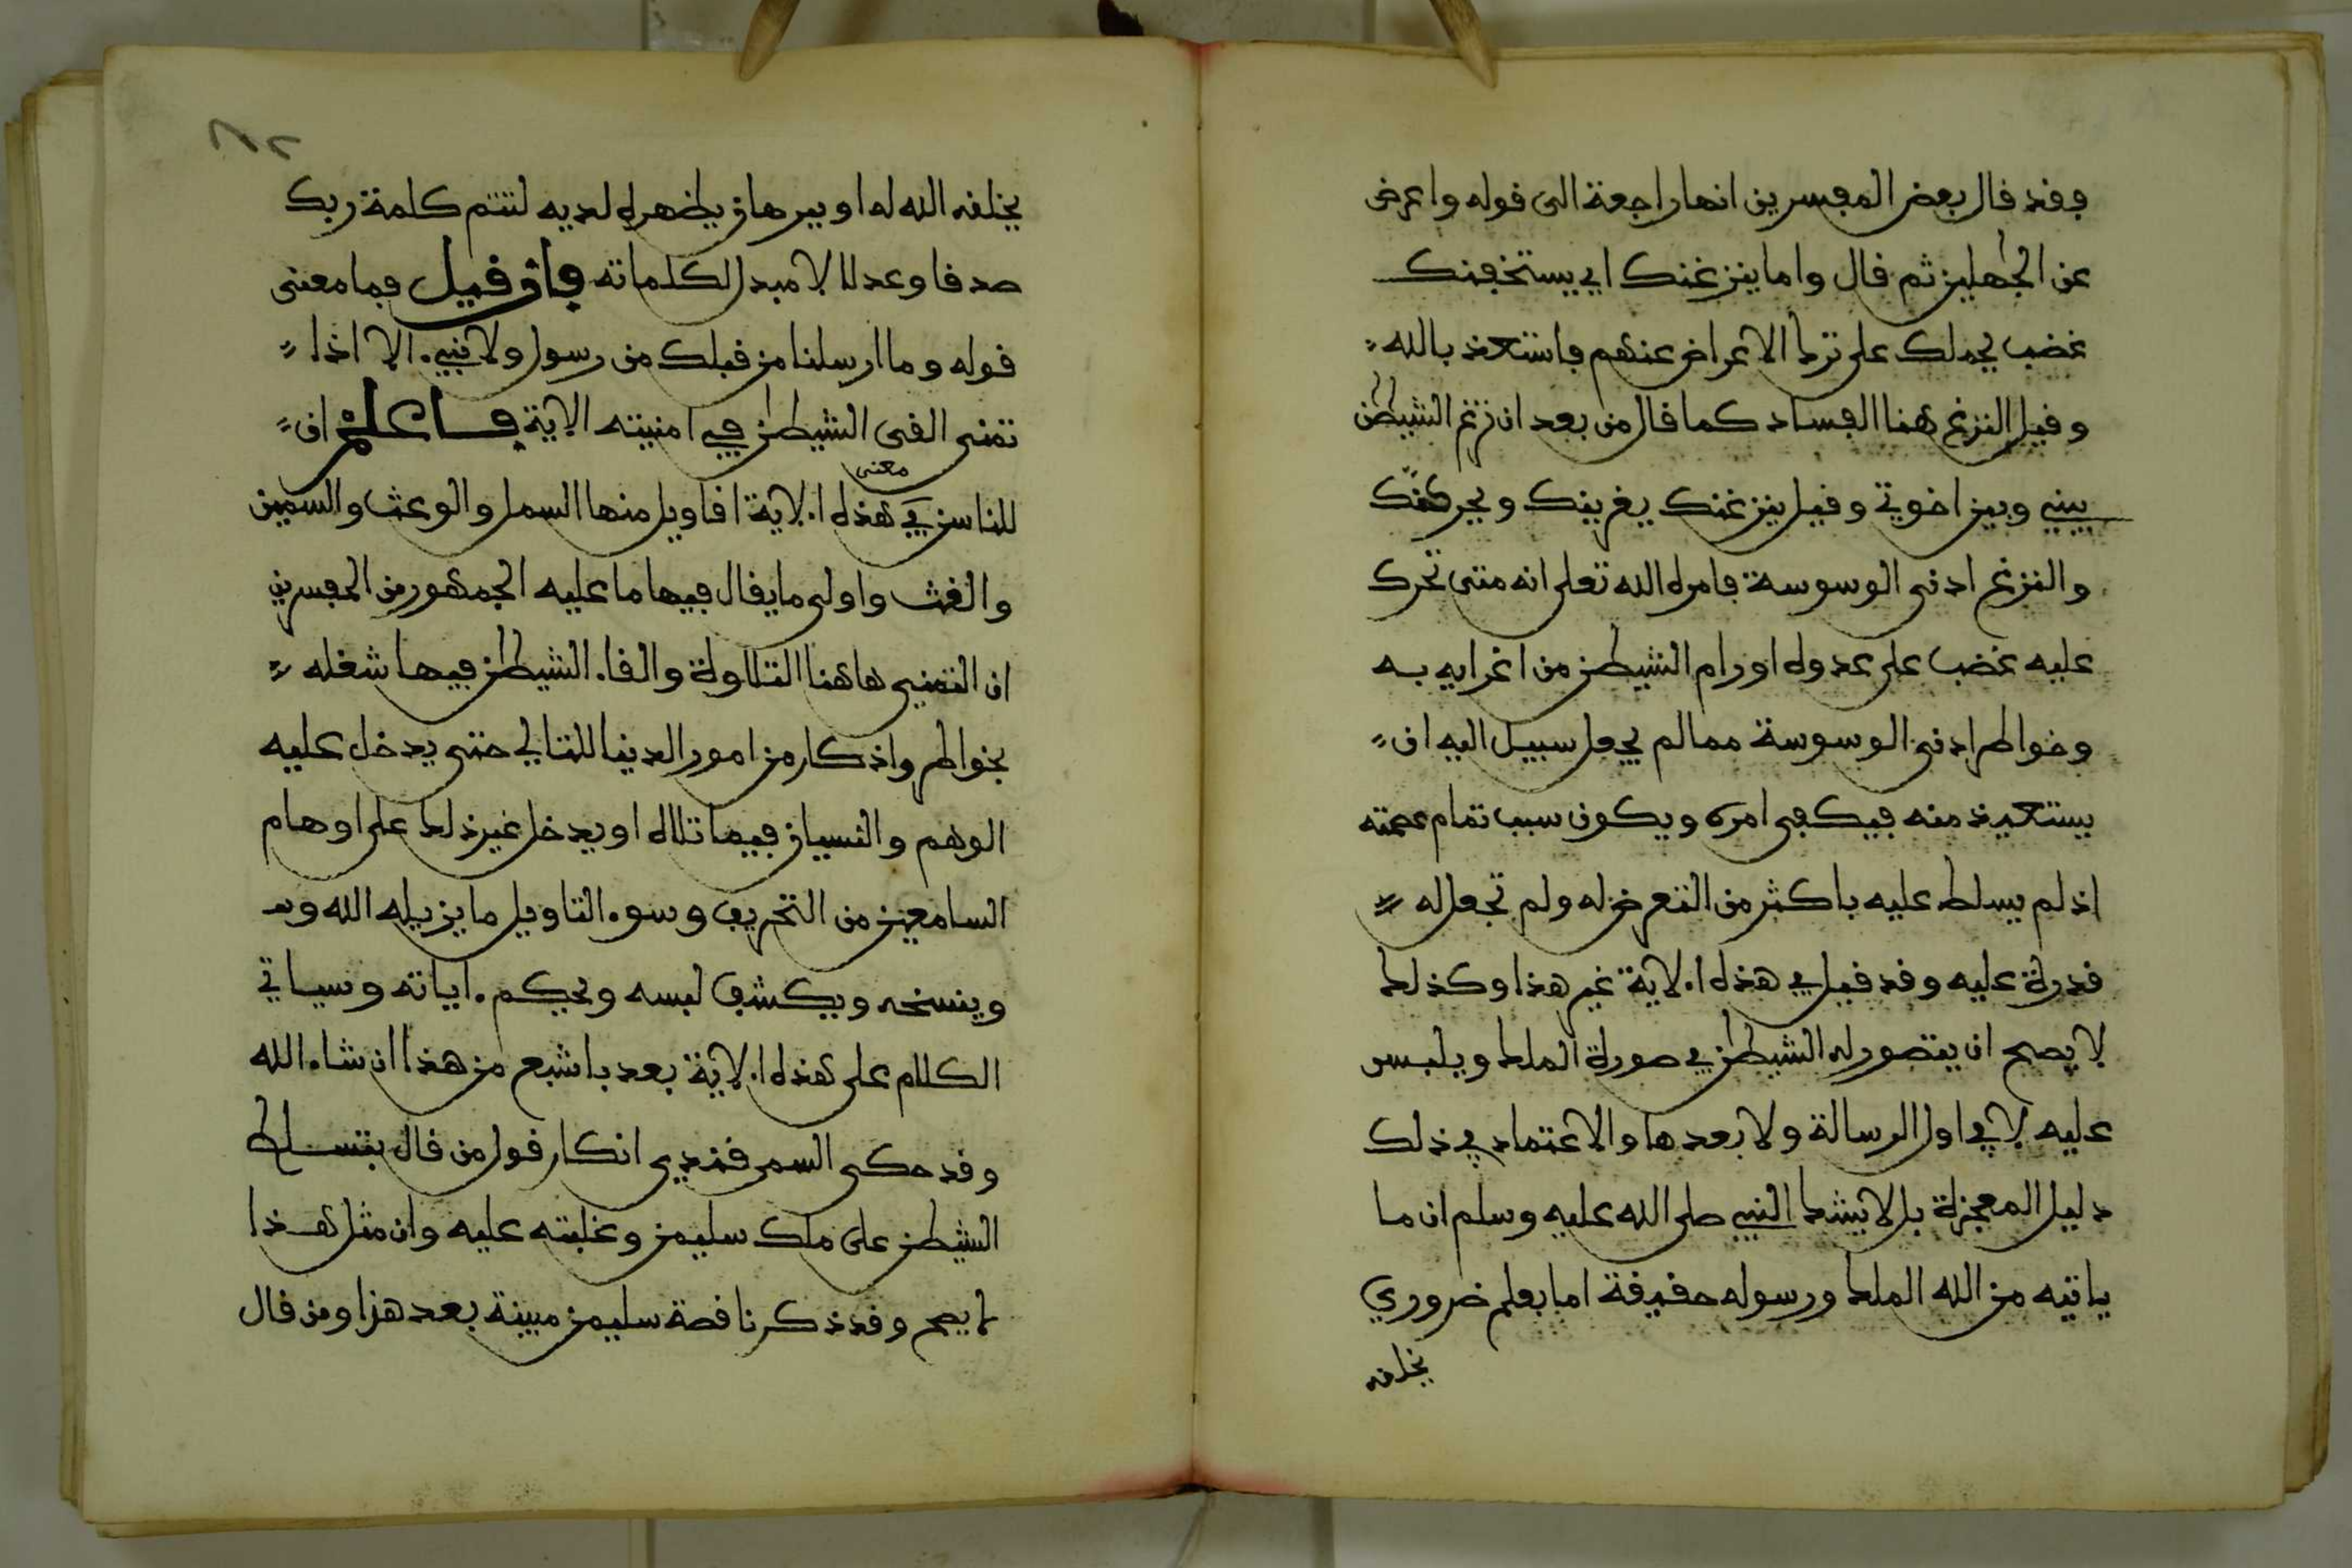 فقد قال بعض المفسرين انها راجعة الى قوله واعرض
عن الجهلين ثم قال واما ينزغنك اي يستخفنك
غضب يحملك على ترك الاعراض عنهم فاستعذ بالله
وقيل النزغ هنا الفساد كما قال من بعد ان نزغ الشيطن
بيني وبين اخوتي وقيل ينزغنك يغرينك ويحركنّك
والنزغ ادنى الوسوسة فامره الله تعلى انه متى تحرك
عليه غضب على عدوه او رام الشيطن من اغرايه به
وخواطر ادنى الوسوسة ما لم يجعل سبيل اليه ان
يستعيذ منه فيكفى امره ويكون سبب تمام عصمته
اذ لم يسلط عليه باكثر من التعرض له ولم تجعل له
قدرة عليه وقد قيل في هذه الاية غير هذا وكذلك
لا يصح ان يتصور له الشيطن في صورة الملك ويلبس
عليه لا في اول الرسالة ولا بعدها والاعتماد في ذلك
دليل المعجزة بل لا يشك النبي صلى الله عليه وسلم ان ما
ياتيه من الله الملك ورسوله حقيقة اما بعلم ضروري
يخلقه
٨٢
يخلقه الله له او ببرهان يظهره لديه لتتم كلمة ربك
صدقا وعدلا لا مبدل لكلماته فان قيل فما معنى
قوله وما ارسلنا من قبلك من رسول ولا نبي الا اذا
تمنى القى الشيطن في امنيته الاية فاعلم ان
للناس في معنى هذه الاية اقاويل منها السهل والوعث والسمين
والغث واولى ما يقال فيها ما عليه الجمهور من المفسرين
ان التمني هاهنا التلاوة والقاء الشيطن فيها شغله
بخواطر واذكار من امور الدنيا للتالي حتى يدخل عليه
الوهم والنسيان فيما تلاه او يدخل غير ذلك على اوهام
السامعين من التحريف وسوء التاويل ما يزيله الله
وينسخه ويكشف لبسه ويحكم اياته وسياتي
الكلام على هذه الاية بعد باشبع من هذا ان شاء الله
وقد حكى السمرقندي انكار قول من قال بتسلط
الشيطن على ملك سليمن وغلبته عليه وان مثل هذا
لا يصح وقد ذكرنا قصة سليمن مبينة بعد هذا ومن قال